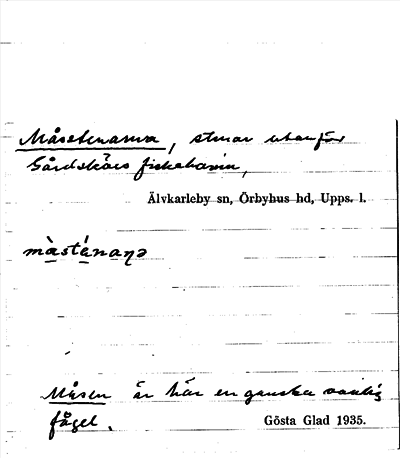 Måsstenarna, stenar utanför
Gårdskärs fiskehamn,
Älvkarleby sn, Örbyhus hd, Upps. l.
màsténaṇa
Måsen är här en ganska vanlig
fågel.
Gösta Glad 1935.